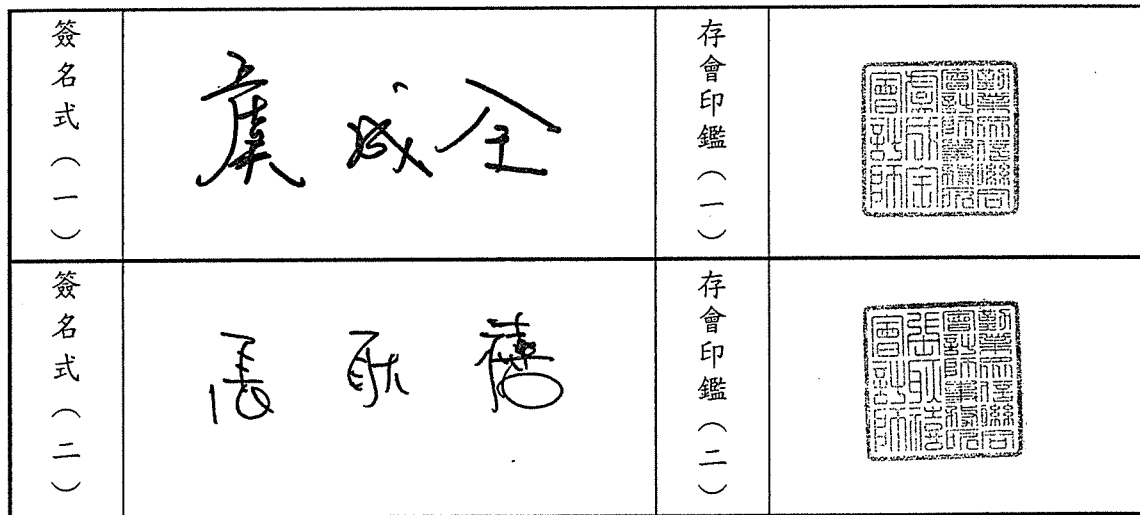 簽名式（一）
虞成全
存會印鑑（一）
勤業眾信聯合
會計師事務所
虞成全
會計師
簽名式（二）
張耿禧
存會印鑑（二）
勤業眾信聯合
會計師事務所
張耿禧
會計師